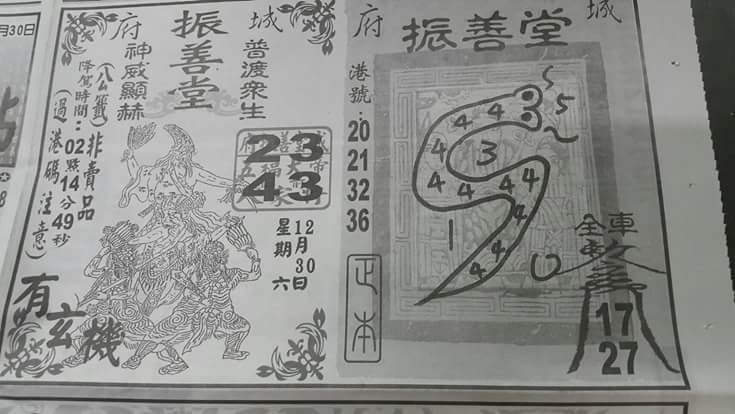 月30日
府城
振善堂
神威顯赫
普渡眾生
(公籤非賣品
降駕時間：02點14分49秒
(過港碼注意)
23
43
12月30日
星期六
有玄機
府城
振善堂
港號：20 21 32 36
正本
5
4 4 3
4 4
3
4 4 4 4
4
1
4
4
4 4
0
全車
17
27
8